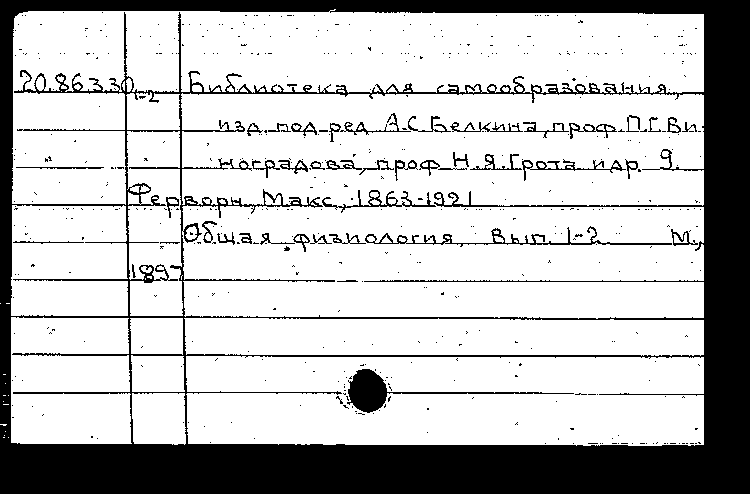 20.86330 1-2 Библиотека для самообразования,
изд. под ред А.С.Белкина, проф. П.Г.Ви-
ноградова, проф Н.Я.Грота и др. 9.
Ферворн, Макс, 1863-1921
Общая физиология, Вып. 1-2 М.,
1897